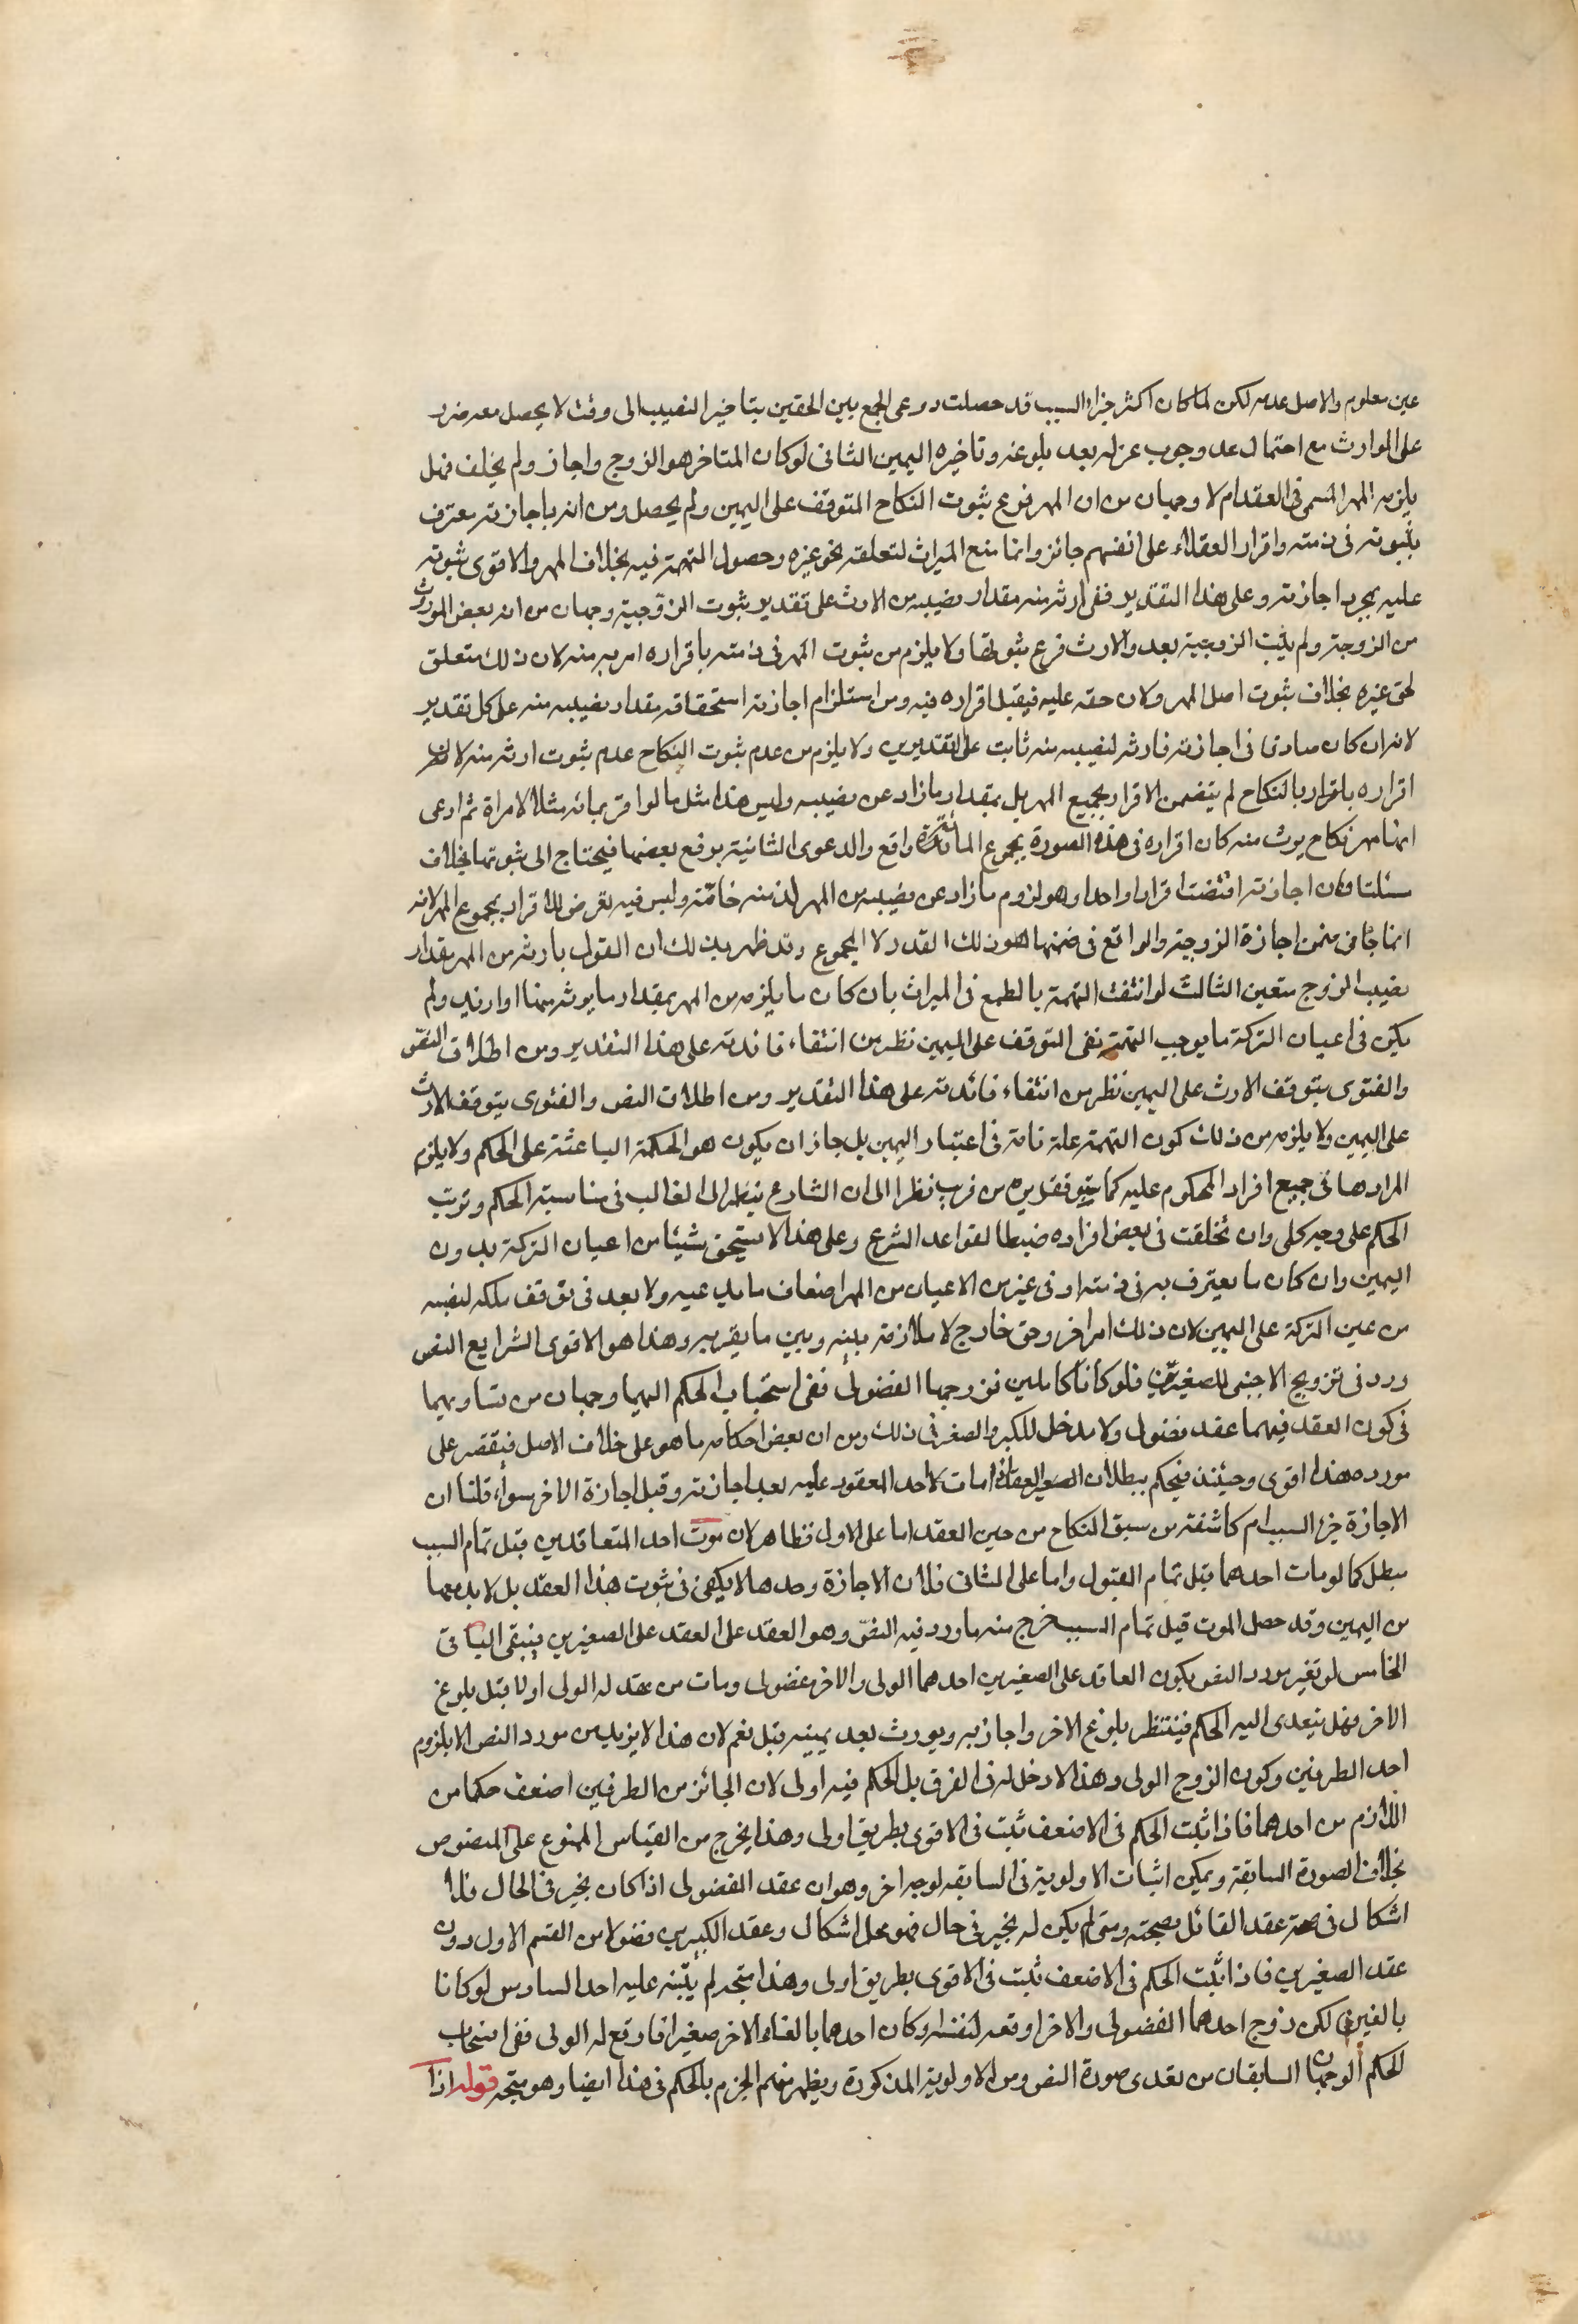 عين معلوم والاصل عدمه لكن لما كان اكثر جزاء السبب قد حصلت روعى الجمع بين الحقين بتاخير النصيب الى وقت لا يحصل معه ضرر
على الوارث مع احتمال عدم وجوب عزله بعد بلوغه وتاخيره اليمين الثانى لو كان المتاخر هو الزوج واجاز ولم يحلف فهل
يلزمه المهر المسمى فى العقد ام لا وجهان من ان المهر فرع ثبوت النكاح المتوقف على اليمين ولم يحصل ومن انه باجازته معترف
بثبوته فى ذمته واقرار العقلاء على انفسهم جائز وانما منع الميراث لتعلقه بحق غيره وحصول التهمة فيه بخلاف المهر والاقوى ثبوته
عليه بمجرد اجازته وعلى هذا التقدير ففى ارثه منه مقدار نصيبه من الارث على تقدير ثبوت الزوجية وجهان من انه بعض الموروث
من الزوجة ولم يثبت الزوجية بعد والارث فرع ثبوتها ولا يلزم من ثبوت المهر فى ذمته باقراره ارثه منه لان ذلك متعلق
بحق غيره بخلاف ثبوت اصل المهر ولان حقه عليه فيقبل اقراره فيه ومن استلزام اجازته استحقاقه مقدار نصيبه منه على كل تقدير
لانه ان كان صادقا فى اجازته فارثه لنصيبه منه ثابت على التقديرين ولا يلزم من عدم ثبوت النكاح عدم ثبوت ارثه منه لان
اقراره باقرار بالنكاح لم يتضمن الاقرار بجميع المهر بل بمقدار ما زاد عن نصيبه وليس هذا مثل ما لو اقر بمائه مثلا لامراة ثم ادعى
انها مهر نكاح يرث منه كان اقراره فى هذه الصورة بمجموع المائة واقع والدعوى الثانية برفع بعضها فيحتاج الى ثبوتها بخلاف
مسئلتنا فان اجازته اقتضت اقرارا واحدا وهو لزوم ما زاد عن نصيبه من المهر لذمته خاصة وليس فيه تعرض للاقرار بمجموع المهر لانه
انما جاء من ضمن اجازة الزوجية والواقع فى ضمنها هو ذلك القدر لا المجموع وقد ظهر بذلك ان القول بارثه من المهر بمقدار
نصيب الزوج متعين الثالث لو انتفت التهمة بالطمع فى الميراث بان كان ما يلزمه من المهر بمقدار ما يرثه منها او ازيد ولم
يكن فى اعيان التركة ما يوجب التهمة ففى التوقف على اليمين نظر من انتفاء فائدته على هذا التقدير ومن اطلاق النص
والفتوى بتوقف الارث على اليمين نظر من انتفاء فائدته على هذا التقدير ومن اطلاق النص والفتوى بتوقف الارث
على اليمين ولا يلزم من ذلك كون التهمة علة تامة فى اعتبار اليمين بل جاز ان يكون هو الحكمة الباعثة على الحكم ولا يلزم
اطرادها فى جميع افراد المحكوم عليه كما يتوقف من قرب نظرا الى ان الشارع ينظر الى الغالب فى مناسبة الحكم وترتب
الحكم على وجه كلى وان تخلفت فى بعض افراده ضبطا لقواعد الشرع وعلى هذا لا يستحق شيئا من اعيان التركة بدون
اليمين وان كان ما يعترف به فى ذمته او فى غيره من الاعيان من المهر اضعاف ما يدعيه ولا بعد فى توقف ملكه لنصيبه
من عين التركة على اليمين لان ذلك امر اخر وحق خارج لا ملازمة بينه وبين ما يقر به وهذا هو الاقوى الرابع النص
ورد فى تزويج الاجنبى للصغيرين فلو كانا كاملين فزوجهما الفضولى ففى انسحاب الحكم اليهما وجهان من تساويهما
فى كون العقد فيهما عقد فضولى ولا مدخل للكبر والصغر فى ذلك ومن ان بعض احكامه ما هو على خلاف الاصل فيقتصر على
مورده وهذا اقوى وحينئذ فيحكم ببطلان العقد اذا مات احد المعقود عليه بعد اجازته وقبل اجازة الاخر سواء قلنا ان
الاجازة جزء السبب ام كاشفة من سبق النكاح من حين العقد اما على الاول فظاهر لان موت احد المتعاقدين قبل تمام السبب
مبطل كما لو مات احدهما قبل تمام القبول واما على الثانى فلان الاجازة وحدها لا يكفى فى ثبوت هذا العقد بل لابد معها
من اليمين وقد حصل الموت قبل تمام السبب خرج منه ما ورد فيه النص وهو العقد على العقد على الصغيرين فيبقى الباقى
الخامس لو تغير مورد النص بكون العاقد على الصغيرين احدهما الولى والاخر فضولى ومات من عقد له الولى اولا قبل بلوغ
الاخر فهل يتعدى اليه الحكم فينتظر بلوغ الاخر واجازته ويورث بعد يمينه قيل نعم لان هذا لا يزيد من مورد النص الا بلزوم
احد الطرفين وكون الزوج الولى وهذا لا دخل له فى الفرق بل الحكم فيه اولى لان الجائز من الطرفين اضعف حكما من
اللازم من احدهما فاذا ثبت الحكم فى الاضعف ثبت فى الاقوى بطريق اولى وهذا يخرج من القياس الممنوع على المنصوص
بخلاف الصورة السابقة ويمكن اثبات الاولوية فى السابقه لوجه اخر وهو ان عقد الفضولى اذا كان يخير فى الحال فلا
اشكال فى صحة عقد القائل بصحته ومتى لم يكن له يخير فى حال فهو محل اشكال وعقد الكبيرين فضولا من القسم الاول دون
عقد الصغيرين فاذا ثبت الحكم فى الاضعف ثبت فى الاقوى بطريق اولى وهذا متجه لم ينبه عليه احد السادس لو كانا
بالغين لكن زوج احدهما الفضولى والاخر اوقعه لنفسه او كان احدهما بالغا والاخر صغيرا فاوقع له الولى ففى انسحاب
الحكم الوجهان السابقان من تعدى صورة النص ومن الاولوية المذكورة ويظهر منهم الجزم بالحكم فى هذا ايضا وهو متجه قوله اذا